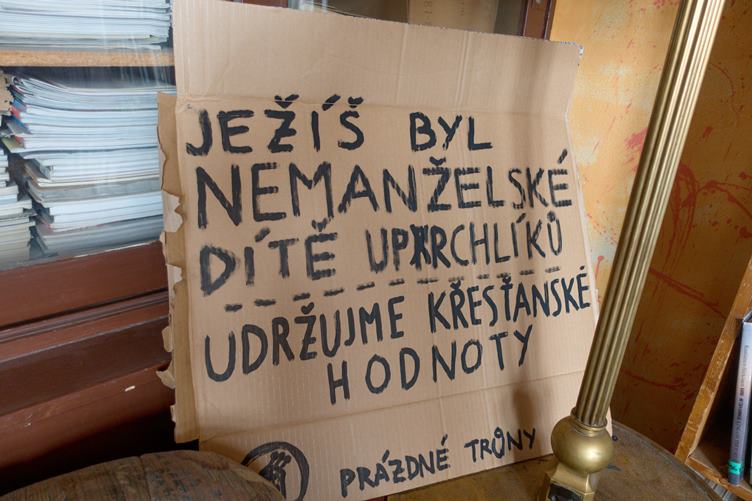 JEŽÍŠ BYL
NEMANŽELSKÉ
DÍTĚ UPRCHLÍKŮ
UDRŽUJME KŘESŤANSKÉ
HODNOTY
PRÁZDNÉ TRŮNY